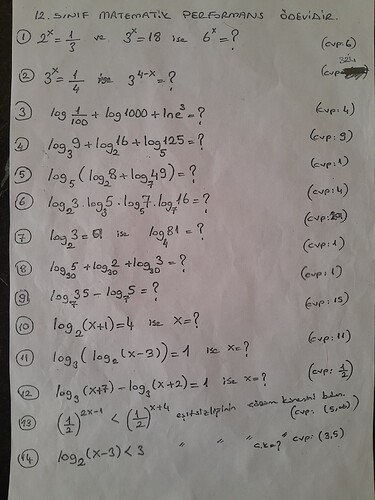 12. SINIF MATEMATİK PERFORMANS ÖDEVİDİR.
① 2^x = 1/3 ve 3^x = 18 ise 6^x = ? (cvp: 6)
② 3^x = 1/4 ise 3^(4-x) = ? 324 (cvp:
③ log 1/100 + log1000 + lne^3 = ? (cvp: 4)
④ log_3 9 + log_2 16 + log_5 125 = ? (cvp: 9)
⑤ log_5 (log_2 8 + log_7 49) = ? (cvp: 1)
⑥ log_2 3 . log_3 5 . log_5 7 . log_7 16 = ? (cvp: 4)
⑦ log_2 3 = ise log_4 81 = ? (cvp:
⑧ log_30 5 + log_30 2 + log_30 3 = ? (cvp: 1)
⑨ log_7 35 - log_7 5 = ? (cvp: 1)
⑩ log_2 (x+1) = 4 ise x = ? (cvp: 15)
⑪ log_3 (log_2 (x-3)) = 1 ise x = ? (cvp: 11)
⑫ log_3 (x+7) - log_3 (x+2) = 1 ise x = ? (cvp: 1/2)
⑬ (1/2)^(2x-1) < (1/2)^(x+4) eşitsizliğinin çözüm kümesini bulun. (cvp: (5,∞)
⑭ log_2 (x-3) < 3 " " " G.K = ? cvp: (3,5)